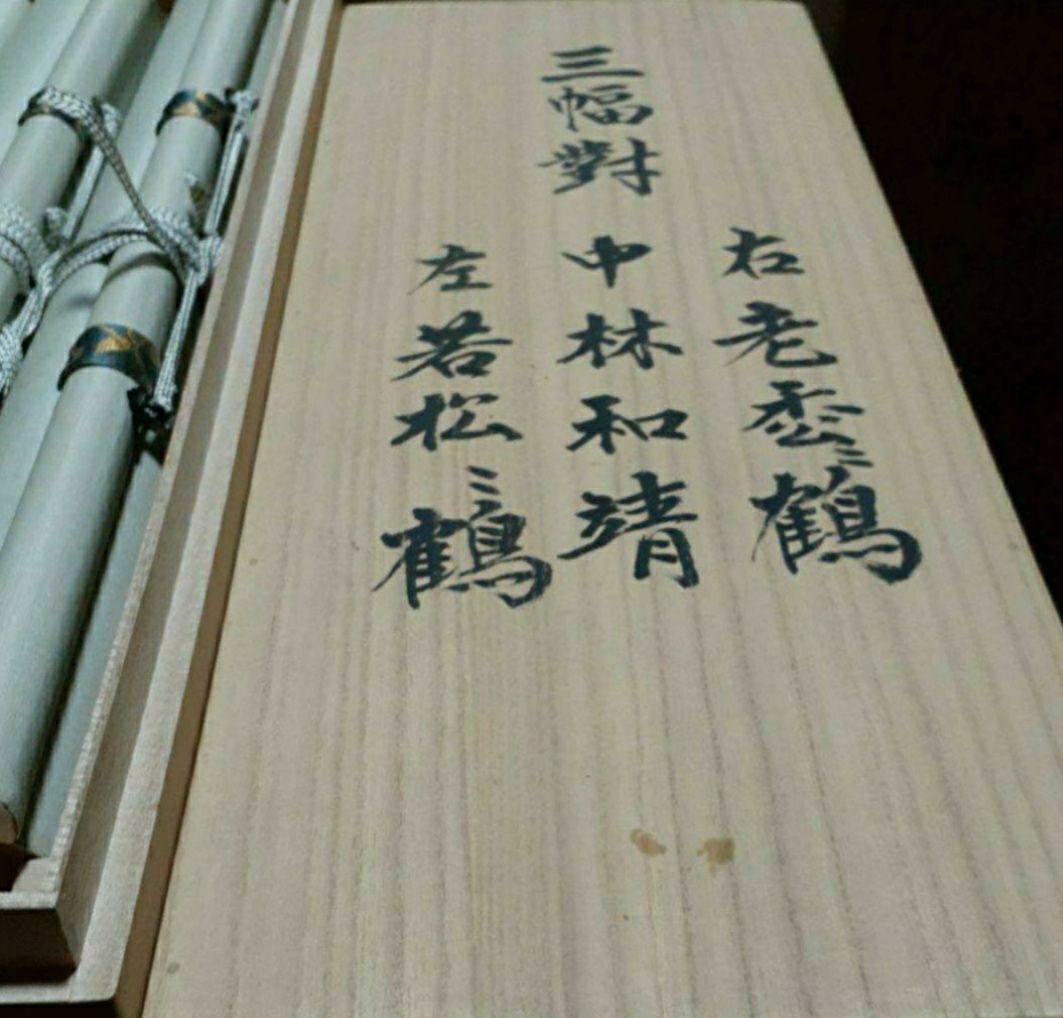 三幅對
右老枩ニ鶴
中林和靖
左若松ニ鶴